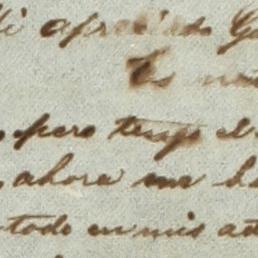 Mi apreciado G
Es
pero tengo el
ahora me h
todo en mis